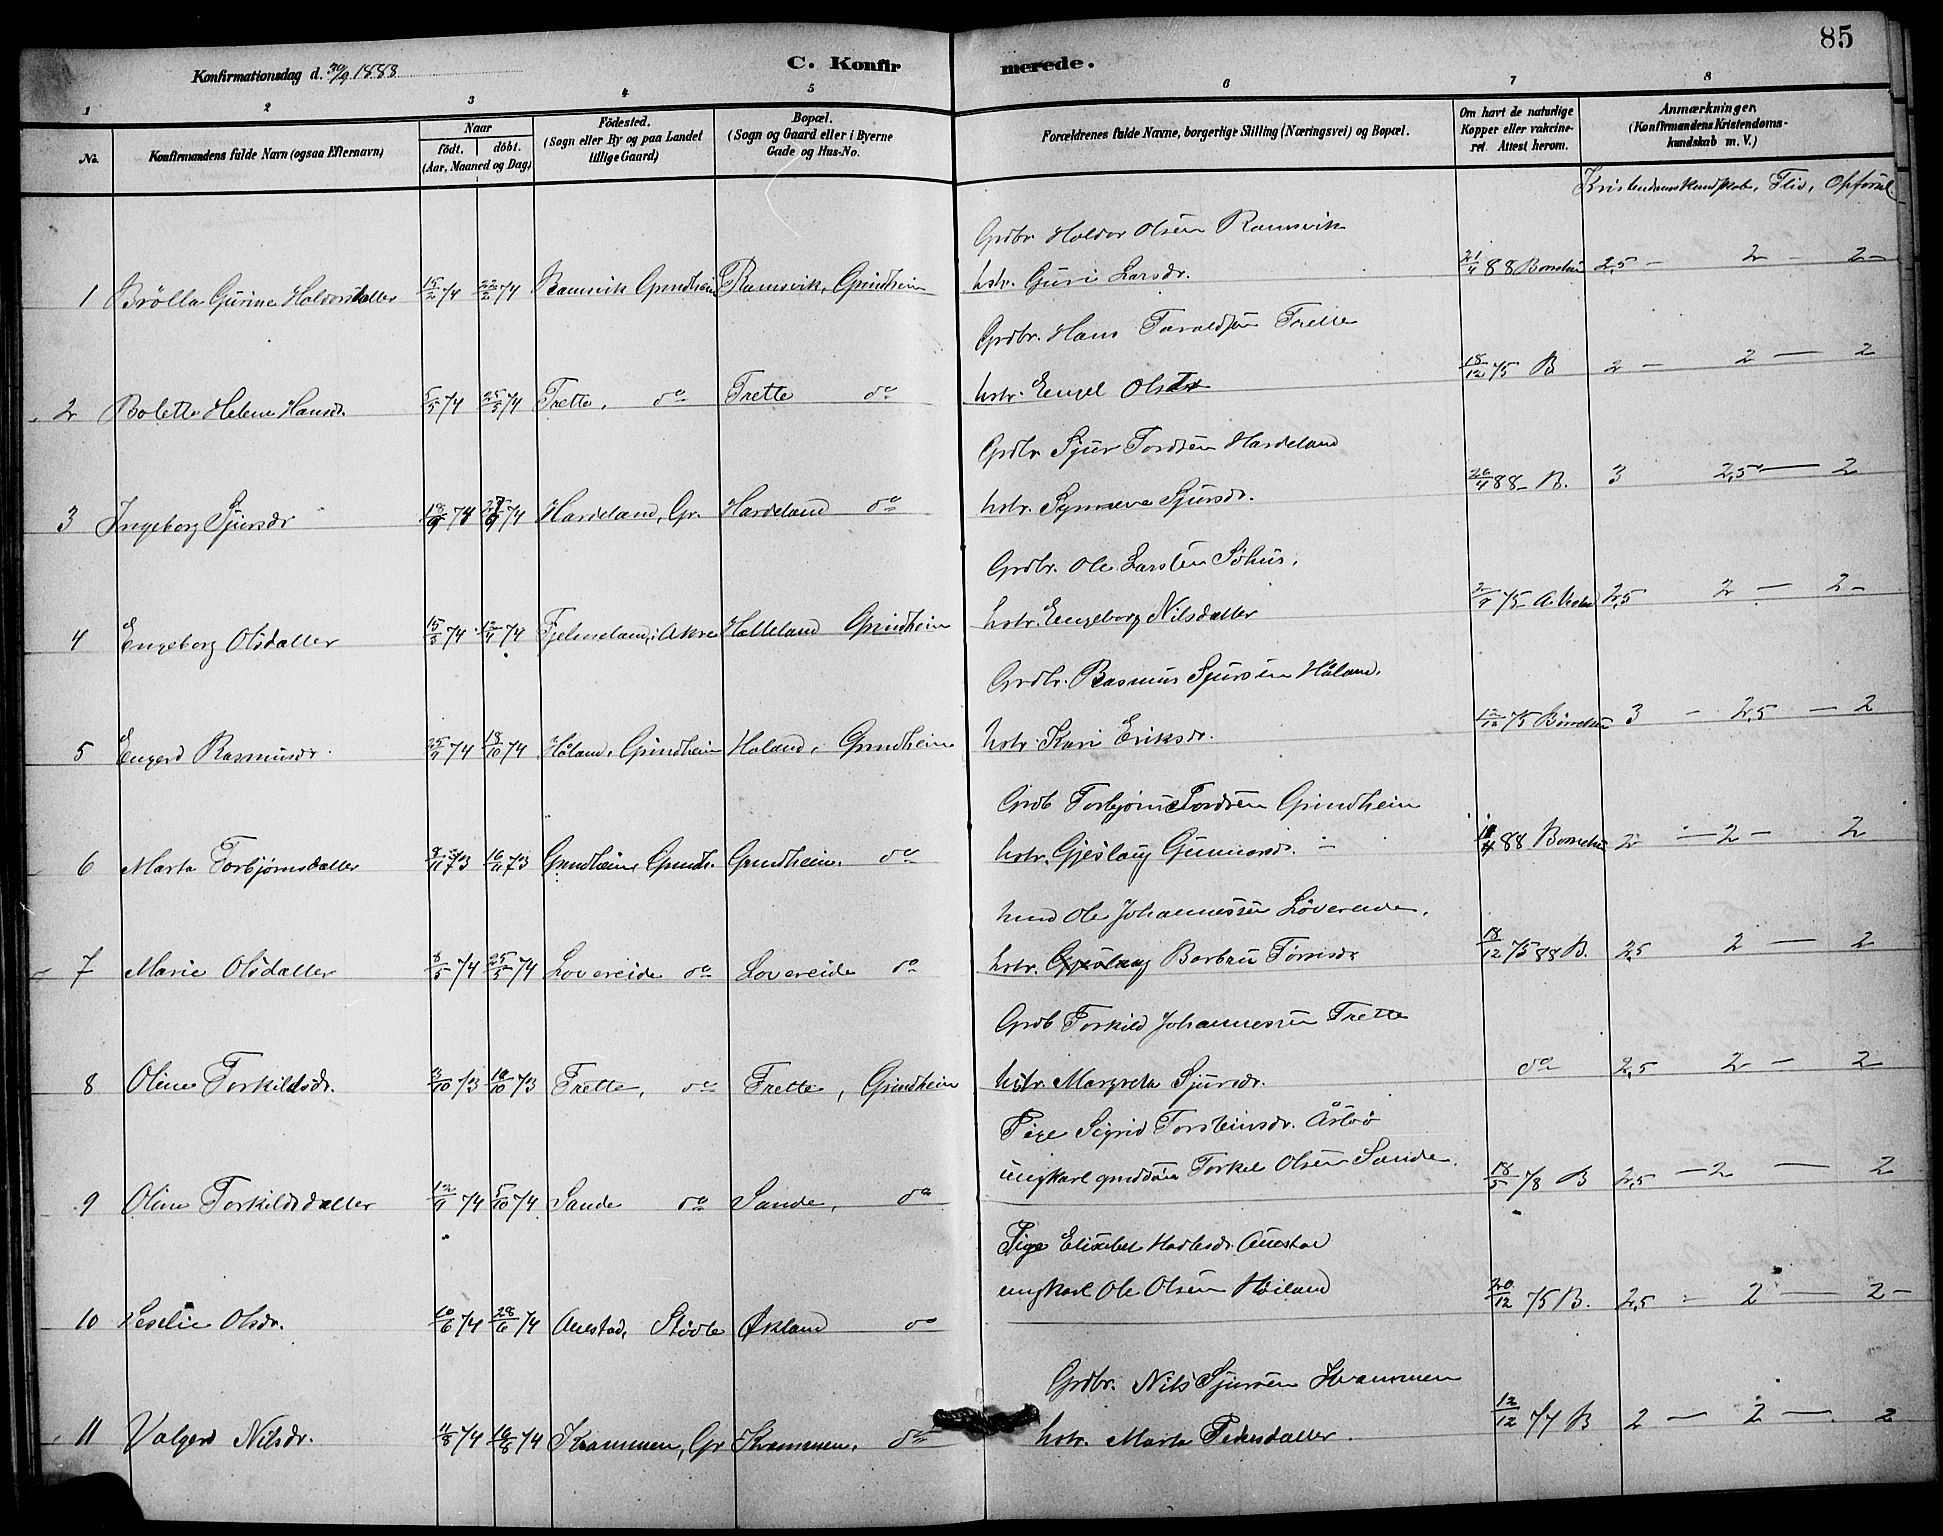 85
Konfirmationsdag d. 30/9 1888
C. Konfirmerede.
1 2 3 4 5 6 7 8
No.
Konfirmandens fulde Navn (ogsaa Efternavn)
Naar født. døbt. (Aar, Maaned og Dag)
Fødested. (Sogn eller By og paa Landet tillige Gaard)
Bopæl. (Sogn og Gaard eller i Byerne Gade og Hus-No.
Forældrenes fulde Navne, borgerlige Stilling (Næringsvei) og Bopæl.
Om havt de naturlige Kopper eller vakcineret. Attest herom.
Anmærkninger. (Konfirmandens Kristendomskundskab m. V.)
Kristendomskundskab, Flid, Opførsel
Grdbr. Haldor Olsen Ramsvik
1 Brølla Gurine Haldorsdatter 15/2 74 22/2 74 Ramsvik Grindheim Ramsvik, Grindheim hstr. Guri Larsdr. 21/4 88 2,5 – 2 – 2 –
Grdbr. Hans Taraldsen Trette
2 Bolette Helene Hansdr. 5/5 74 25/5 74 Trette, do Trette do hstr. Engel Olsdtr 18/12 75 B 2 – 2 – 2
Grdbr Sjur Tordsen Hardeland
3 Ingeborg Sjursdr 18/9 74 27/9 74 Hardeland, Gr. Hardeland do hstr. Synneva Sjursdr. 26/4 88 – B. 3 2,5 – 2
Grdbr. Ole Larsen Søhus,
4 Engeborg Olsdatter 15/3 74 12/4 74 Fjelmeland, i Akre Halleland Grindheim hstr. Engeborg Nilsdatter 75 2,5 2 – 2 –
Grdbr. Rasmus Sjursen Håland.
5 Engerd Rasmusdr. 25/9 74 18/10 74 Håland, Grindheim Haland, Grindheim hstr. Kari Eriksdr. 12/12 75 3 – 2,5 – 2
Grdb Torbjørn Tordsen Grindheim
6 Marta Torbjørnsdatter 8/11 73 16/11 73 Grindheim, Grindh. Grindheim, do hstr. Gjeslaug Gunnarsd. – 88 2 – 2 – 2
hmd Ole Johannessen Løvereide,
7 Marie Olsdatter 8/5 74 25/5 74 Lovereide do Lovereide do hstr. Gjeslaug Barbru Tørrisdr 18/12 75 88 B. 2,5 2 – 2
Grdb Torkild Johannessen Trette
8 Oline Torkildsdr. 3/10 73 19/10 73 Trette, do Trette, Grindheim hstr. Margreta Sjursdr. do 2,5 2 – 2
Pige Sigrid Torsteinsdr. Årbø
ungkarl grdsøn Torkel Olsen Sande.
9 Oline Torkildsdatter 12/9 74 5/10 74 Sande do Sande, do 18/5 78 B 2,5 – 2 – 2
Pige Elisebet Hadlesdr. Auestad
ungkarl Ole Olsen Høiland
10 Seselie Olsdr. 10/6 74 28/6 74 Auestad, Stødle Økland do 20/12 75 B. 2,5 – 2 – 2 –
Grdbr. Nils Sjursen Kvammen
11 Valgerd Nilsdr. 11/8 74 16/8 74 Kvammen, Gr Kvammen, do hstr. Marta Pedersdatter. 12/12 77 B 2 – 2 – 2